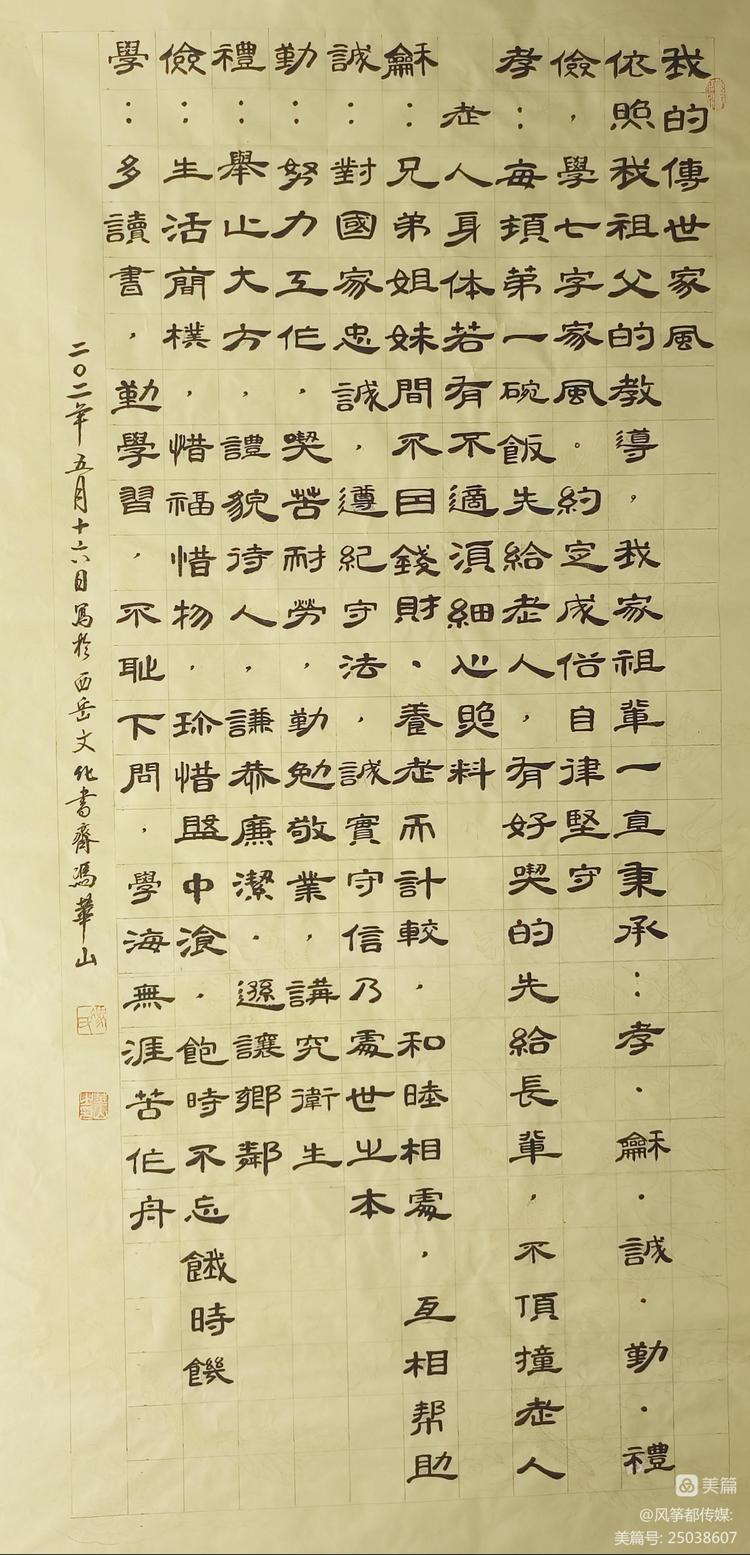 我的傳世家風
依照我祖父的教導，我家祖輩一直秉承：孝·龢·誠·勤·禮
儉，學七字家風。約定成俗自律堅守
孝：每頓第一碗飯先給老人，有好喫的先給長輩，不頂撞老人
老人身体若有不適須細心照料
龢：兄弟姐妹間不因錢財、養老而計較，和睦相處，互相帮助
誠：對國家忠誠，遵紀守法，誠實守信乃處世之本
勤：努力工作，喫苦耐勞，勤勉敬業，講究衛生
禮：舉止大方，禮貌待人，謙恭廉潔·遜讓鄉鄰
儉：生活簡樸，惜福惜物，珍惜盤中飡，飽時不忘餓時饑
學：多讀書，勤學習，不恥下問，學海無涯苦作舟
二〇二一年五月十六日寫於西岳文化書齋馮華山
美篇
@风筝都传媒:
美篇号: 25038607